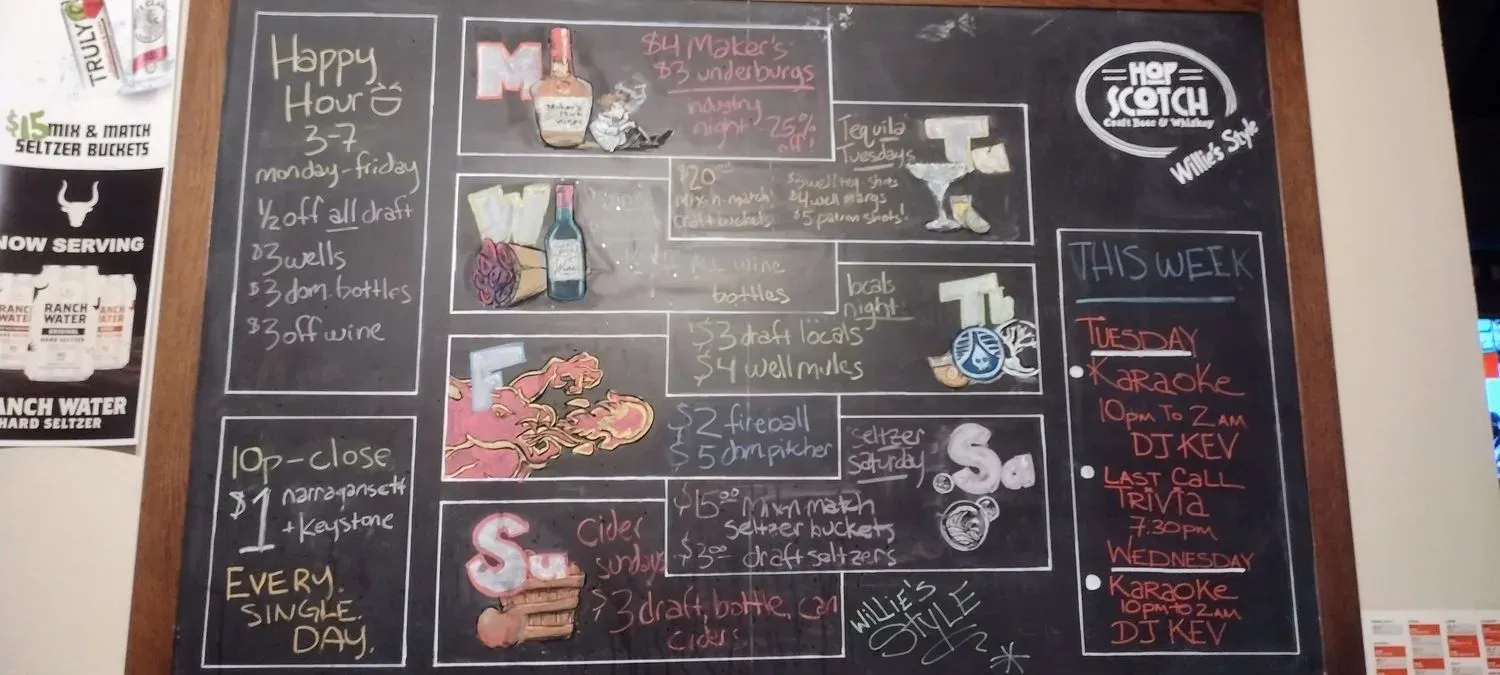 TRULY
$15 MIX & MATCH
SELTZER BUCKETS
NOW SERVING
RANCH
WATER
ORIGINAL
HARD SELTZER
RANCH WATER
HARD SELTZER
Happy
Hour
3-7
monday-friday
1/2 off all draft
$3 wells
$3 dom. bottles
$3 off wine
10p-close
$1 narragansett
+ keystone
EVERY.
SINGLE.
DAY.
M
$4 Maker's
$3 underburgs
industry
night 25%
off
Tu
Tequila
Tuesdays
$20
mix-n-match
craft buckets
$3 well teq. shots
$4 well margs
$5 patron shots!
W
Wine
ALL wine
bottles
Th
locals
night
$3 draft locals
$4 well mules
F
$2 fireball
$5 dom pitcher
Sa
seltzer
saturday
$15.00 mix n match
seltzer buckets
$3.00 draft seltzers
Su
Cider
sundays
$3 draft, bottle, can
ciders
WILLIE'S
STYLE
HOP
SCOTCH
Craft Beer & Whiskey
Willie's Style
THIS WEEK
TUESDAY
KARAOKE
10PM TO 2AM
DJ KEV
LAST CALL
TRIVIA
7:30PM
WEDNESDAY
KARAOKE
10PM TO 2AM
DJ KEV